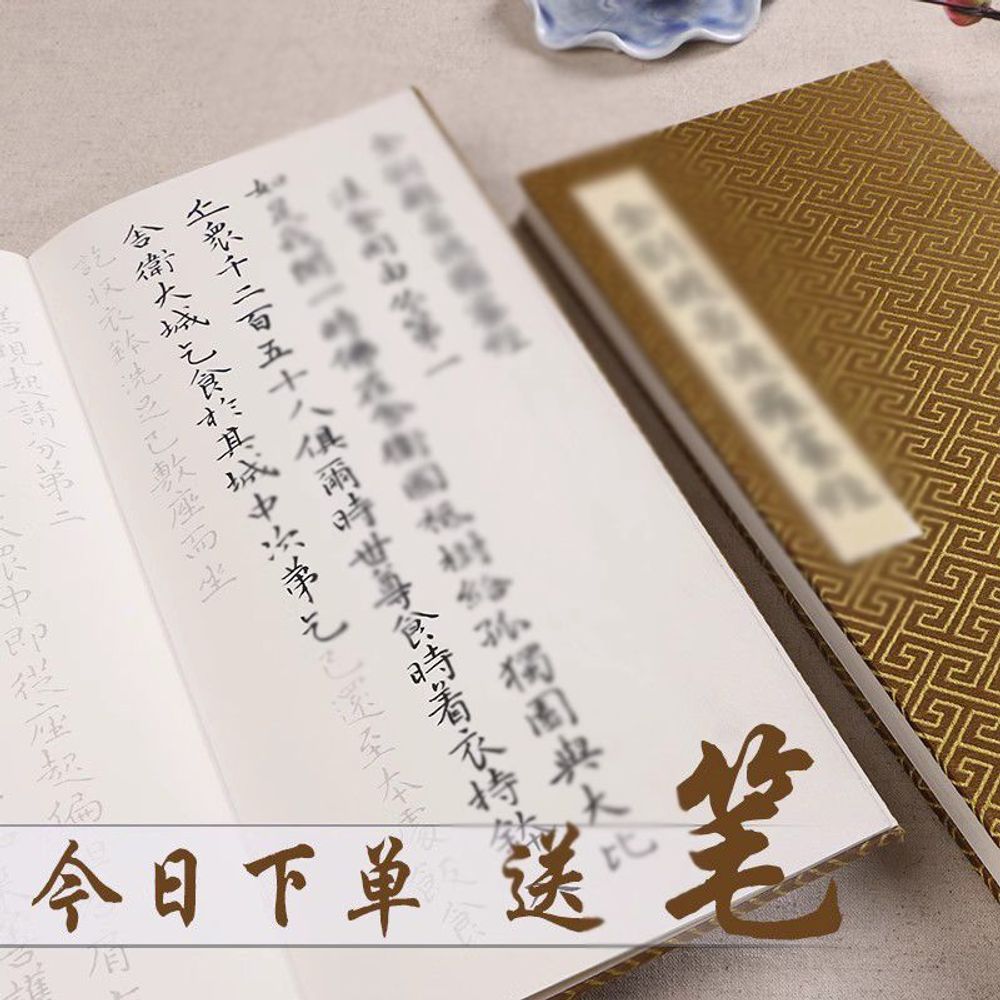 金剛般若波羅蜜經
金剛般若波羅蜜經
法會因由分第一
如是我聞一時佛在舍衛國祗樹給孤獨園與大比
丘衆千二百五十人俱爾時世尊食時着衣持鉢
舍衛大城乞食於其城中次第乞已還至本處飯食
訖收衣鉢洗足已敷座而坐
善現起請分第二
衆中即從座起偏
今日下单 送笔